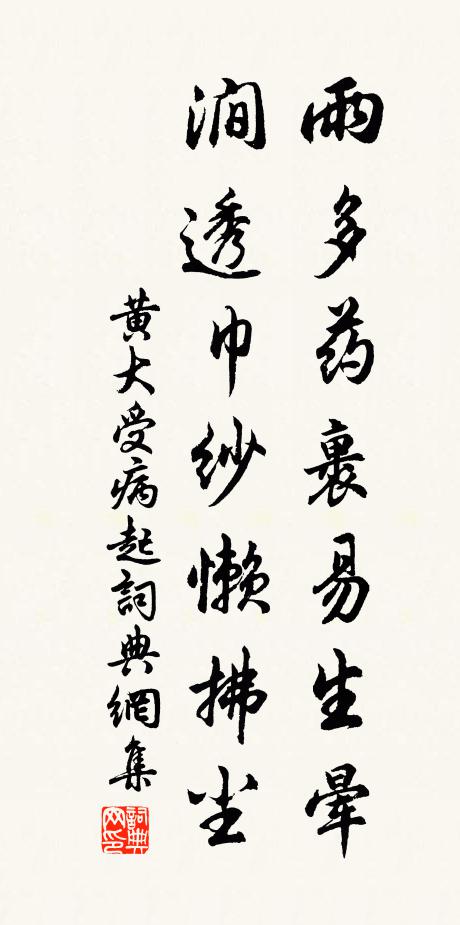 雨多药裹易生晕
润透巾纱懒拂尘
黄大受病起詞典網集
詞典网印